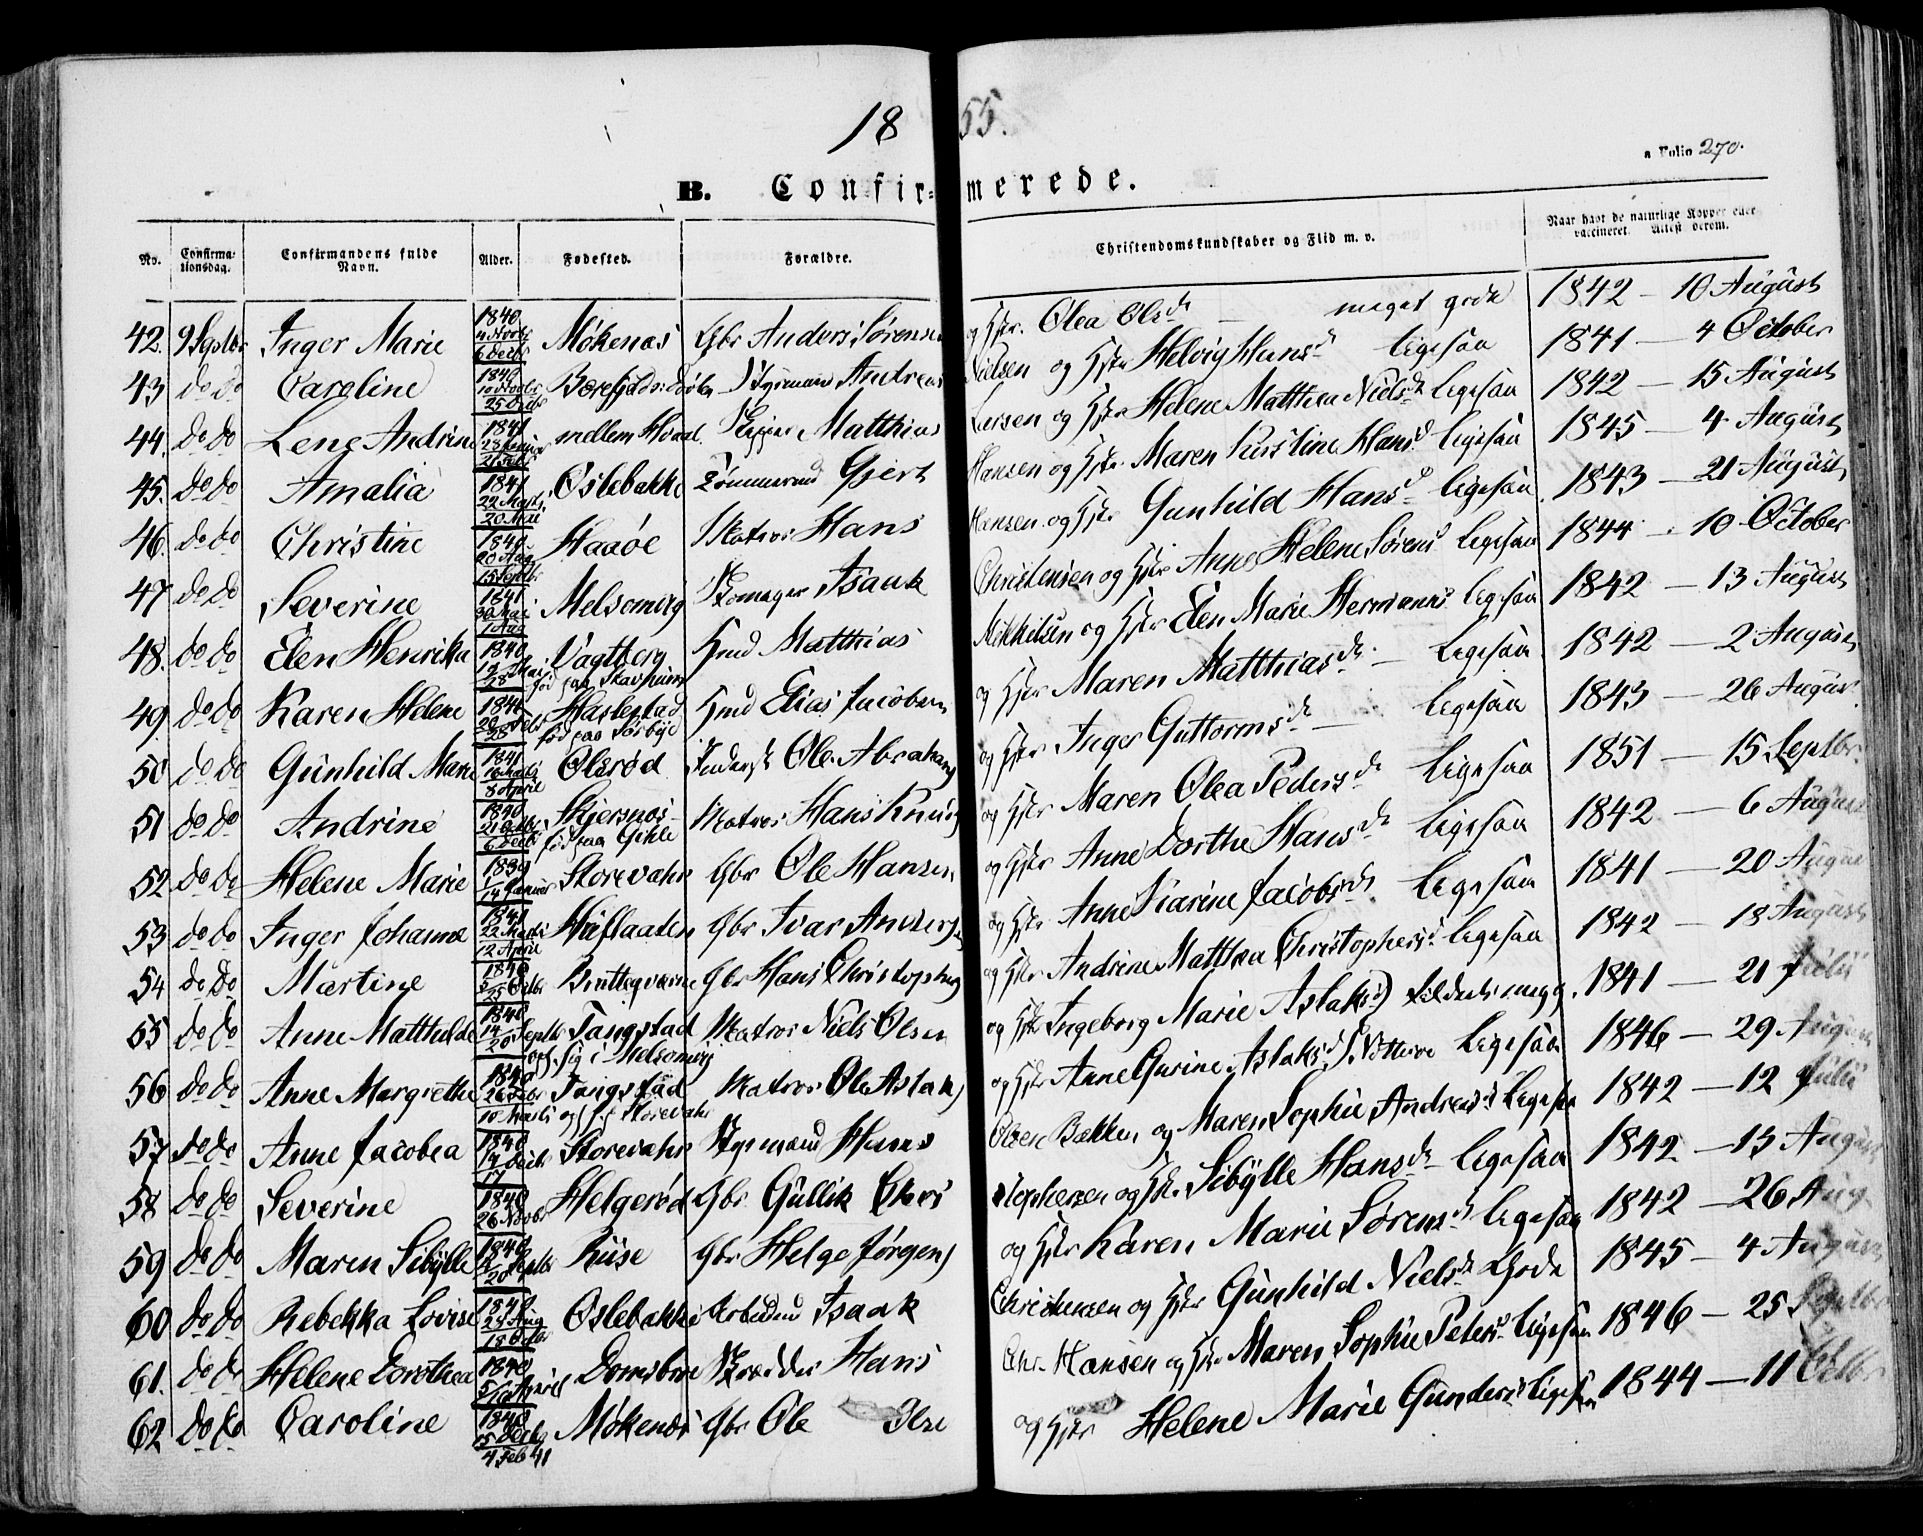 1855.
a Folio 270.
B. Confirmerede.
No. Confirmationsdag. Confirmandens fulde Navn. Alder. Fødested. Forældre. Christendomskundskaber og Flid m. v. Naar havt de naturlige Kopper eller vaccineret. Attest derom.
42. 9 Septbr Inger Marie 1840 4 Novbr 6 Decbr Møkenæs Gbr Anders Sørensen og Hstr. Olea Olsdr meget gode 1842 — 10 August
43 do do Caroline 1840 10 Novbr 25 Decbr Styrmand Andreas Nielsen og Hstr Helvig Hansd ligesaa 1841 — 4 October
44. do do Lene Andrine 1841 28 Januar 21 Febr mellem Hvaal. Skipper Matthias Larsen og Hstr Helene Matthea Nielsdr ligesaa 1842 — 15 August
45. do do Amalia 1841 22 Marts 20 Mai Oslebakke Tømmermd Gjert Hansen og Hstr Maren Kirstine Hansd ligesaa 1845 — 4 August
46. do do Christine 1840 20 Aug 15 Septbr Haaøe Matros Hans Hansen og Hstr Gunhild Hansd ligesaa 1843 — 21 August
47 do do Severine 1841 30 Mai 1 Aug Melsomvig Skomager Isaak Christensen og Hstr Anne Helene Sørensd ligesaa 1844 — 10 October
48. do do Elen Henrika 1840 28 Mai Vagtberg fød paa Husmd Matthias Mikkelsen og Hstr Elen Marie Hermansd ligesaa 1842 — 13 August
49 do do Karen Helene 28 Haslestad fød paa Sørbye Husmd Elias Jacobsen og Hstr Maren Matthiasdr. — ligesaa 1842 — 2 August
50 do do Gunhild Marie 1841 16 Marts 8 April Olsrød Ole Abrahams og Hstr Inger Guttormsdr — ligesaa 1843 — 26 August
51 do do Andrine 1840 21 Octbr 6 Decbr Skjersnæs fød paa Matros Hans Knuds og Hstr Maren Olea Pedersdr ligesaa 1851 — 15 Septbr.
52 do do Helene Marie 1839 14 Januar Storevahr Gbr Ole Hansen og Hstr Anne Dorthe Hansdr ligesaa 1842 — 6 August
53 do do Inger Johanne 1841 22 Marts 12 April Gbr Ivar Anders og Hstr Anne Karine Jacobsdr ligesaa 1841 — 20 August
54 do do Martine 1840 25 Octbr Gbr Hans Christophers og Hstr Andrine Matthea Christophersd ligesaa 1842 — 18 August
55 do do Anne Matthilde 1840 14 Septbr 20 Tangstad opf. sig i Melsomvig Matros Niels Olsen og Hstr Ingeborg Marie Aslaksd 1841 — 21 Julii
56 do do Anne Margrethe 1840 26 Febr 10 Marts Tangstad Storevahr Matros Ole Aslaks og Hstr Anne Gurine Aslaksd ligesaa 1846 — 29 August
57 do do Anne Jacobea 1840 14 Decbr 17 Storevahr Styrmand Hans Olsen Bakken og Maren Sophie Andreasd ligesaa 1842 — 12 Julii
58 do do Severine 1840 26 Novbr Helgerød Gbr Gullik Christophersen og Hstr. Sibylle Hansdr ligesaa 1842 — 13 August
59 do do Maren Sibylle 1840 Septbr 20 Riise Gbr Helge Jørgens og Hstr Karen Marie Sørensd ligesaa 1842 — 26 Aug
60 do do Rebekka Lovise 1840 24 Aug 18 Octbr Oslebakke Arbeidsmd Isaak Christensen og Hstr Gunhild Nielsdr Gode 1845 — 4 August
61. do do Helene Dorothea 1840 5 April Skrædder Hans Chr. Hansen og Hstr Maren Sophie Petersd ligesaa 1846 — 25 Septbr
62 do do Caroline 1840 15 Decbr 4 Feb 41 Møkenæs Gbr Ole Olsen og Hstr Helene Marie Gundersd ligesaa 1844 — 11 Octbr